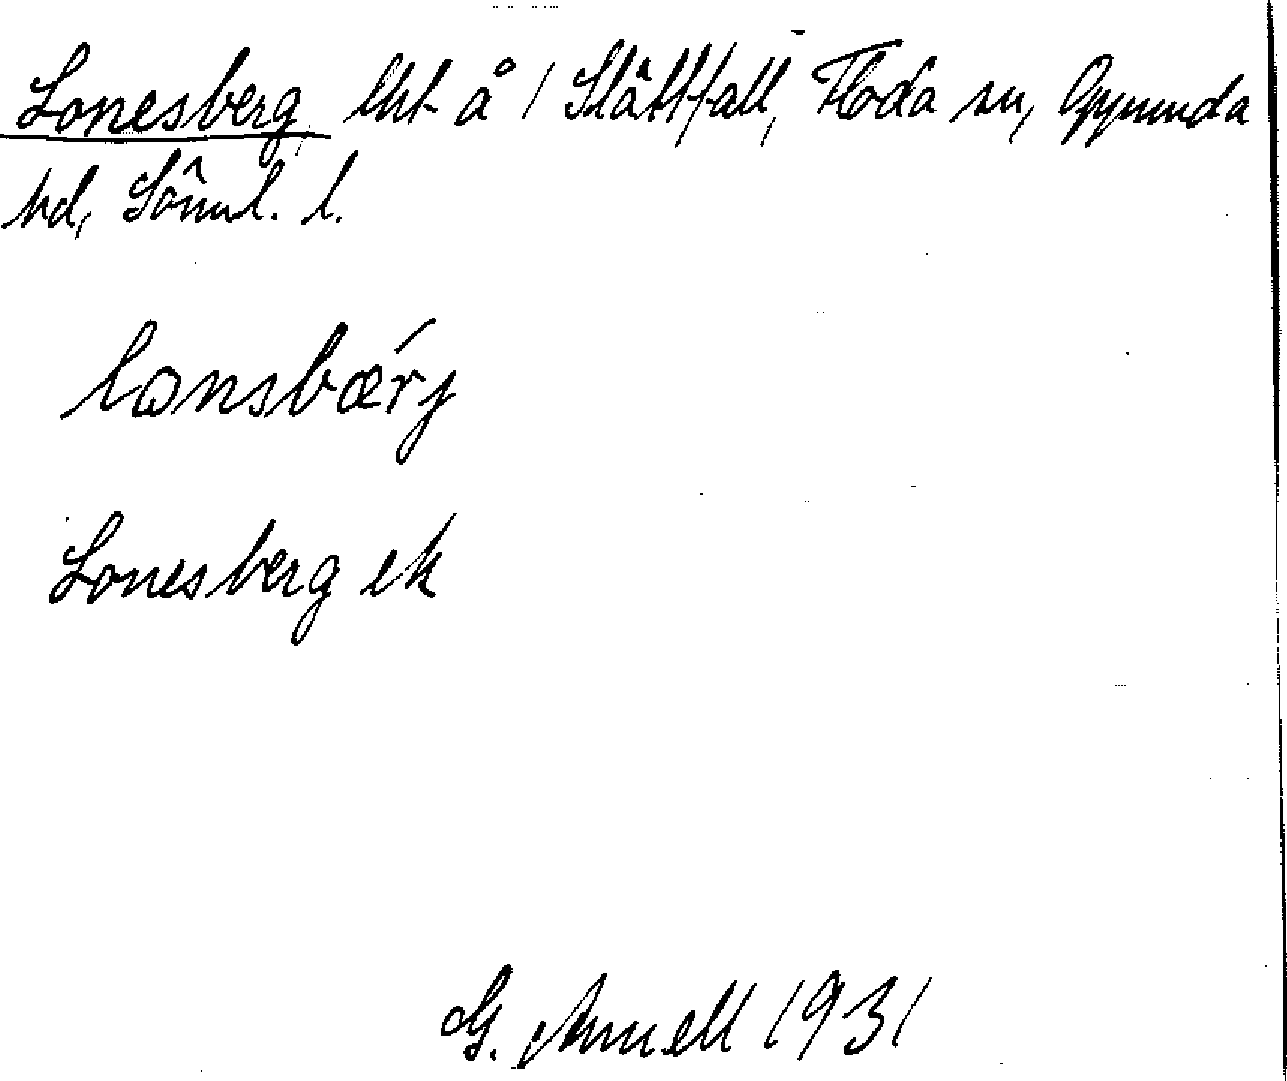 Lonesberg, lht å 1 Slättfall, Floda sn, Oppunda
hd, Söml. l.
lɷnsbær´j
Lonesberg ek
G. Annell 1931